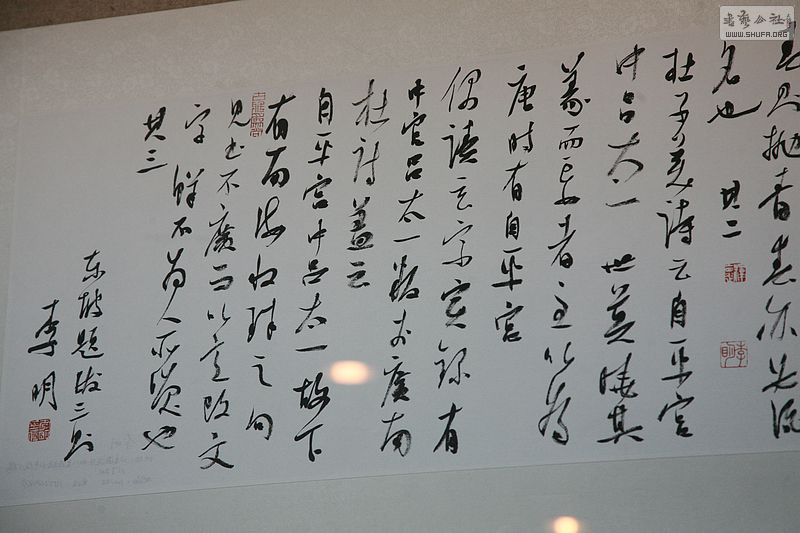 春则抛青春亦必酒
名也 其二
杜子美诗云自平宫
中吕太一世莫晓其
義而妄者至以为
唐时有自平宫
偶读玄宗实録有
中官吕太一叛于廣南
杜诗盖云
自平宫中吕太一故下
有南海收珠之句
见书不廣而以意改文
字鲜不为人所笑也
其三
东坡题跋三则
李明
書藝公社
WWW.SHUFA.ORG